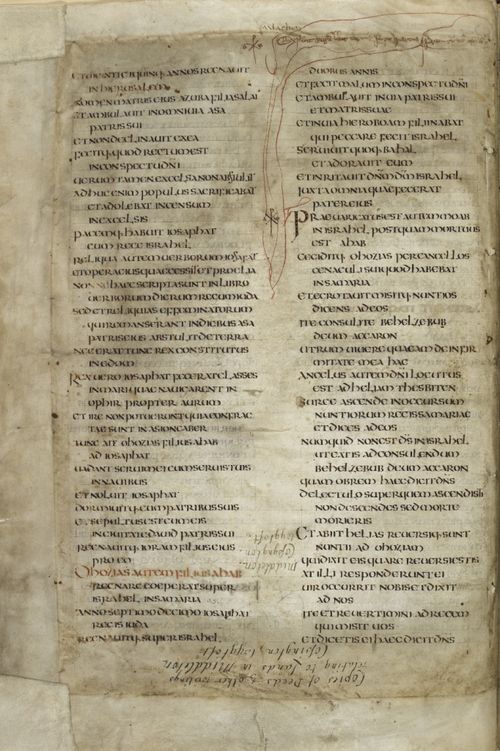 et uiginti et quinq· annos regnauit
in hierusalem
nomen matris eius azuba filia salai
et ambulauit in omni uia asa
patris sui
et non declinauit ex ea
fecitq· quod rectum est
in conspectu dni
uerum tamen excelsa non abstulit
adhuc enim populus sacrificabat
et adolebat incensum
in excelsis
pacemq· habuit iosaphat
cum rege israhel
reliqua autem uerborum iosafat
et opera eius quae gessit et proelia
nonne haec scripta sunt in libro
uerborum dierum regum iuda
sed et reliquias effeminatorum
qui remanserant in diebus asa
patris eius abstulit de terra
nec erat tunc rex constitutus
in edom
Rex uero iosaphat fecerat classes
in mari quae nauigarent in
ophir propter aurum
et ire non potuerunt quia confrac
tae sunt in asiongaber
tunc ait ohozias filius ahab
ad iosaphat
uadant serui mei cum seruis tuis
in nauibus
et noluit iosaphat
dormiuitq· cum patribus suis
et sepultus est cum eis
in ciuitate dauid patris sui
regnauitq· ioram filius eius
pro eo
Ohozias autem filius ahab
regnare coeperat super
israhel in samaria
anno septimo decimo iosaphat
regis iuda
regnauitq· super israhel
duobus annis
et fecit malum in conspectu dni
et ambulauit in uia patris sui
et matris suae
et in uia hieroboam filii nabat
qui peccare fecit israhel
seruiuit quoq· bahal
et adorauit eum
et inritauit dnm dm israhel
iuxta omnia quae fecerat
pater eius
Praeuaricatus est autem moab
in israhel postquam mortuus
est ahab
ceciditq· ohozias per cancellos
cenaculi sui quod habebat
in samaria
et aegrotauit misitq· nuntios
dicens ad eos
ite consulite behelzebub
deum accaron
utrum uiuere queam de infir
mitate mea hac
angelus autem dni locutus
est ad heliam thesbiten
surge ascende in occursum
nuntiorum regis samariae
et dices ad eos
numquid non est ds in israhel
ut eatis ad consulendum
behelzebub deum accaron
quam ob rem haec dicit dns
de lectulo super quem ascendisti
non descendes sed morte
morieris
Et abiit helias reuersiq· sunt
nuntii ad ohoziam
qui dixit eis quare reuersi estis
at illi responderunt ei
uir occurrit nobis et dixit
ad nos
ite et reuertimini ad regem
qui misit uos
et dicetis ei haec dicit dns
Middleton,
Copington,
Leyghtoft.
Copies of Deeds & other writings
relating to Lands in Middleton
Copington, Leyghtoft